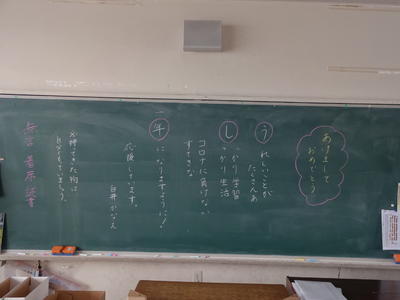 あけまして
おめでとう
う れしいことが
たくさんあ
し っかり学習
っかり生活
コロナに負けない
すてきな
年 になりますように！
応援しています。
白井かなえ
※持ってきた物は
自分でもっていましょう。
無言 着席 読書